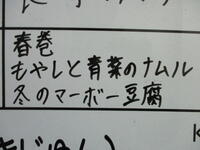 春巻
もやしと青菜のナムル
冬のマーボー豆腐